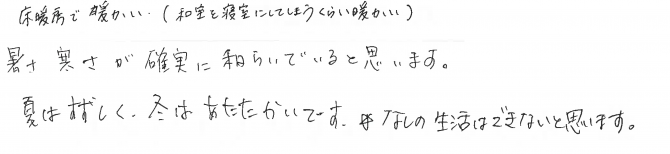 床暖房で暖かい.(和室を寝室にしてしまうくらい暖かい)
暑さ寒さが確実に和らいでいると思います。
夏はすずしく、冬はあたたかいです. なしの生活はできないと思います。